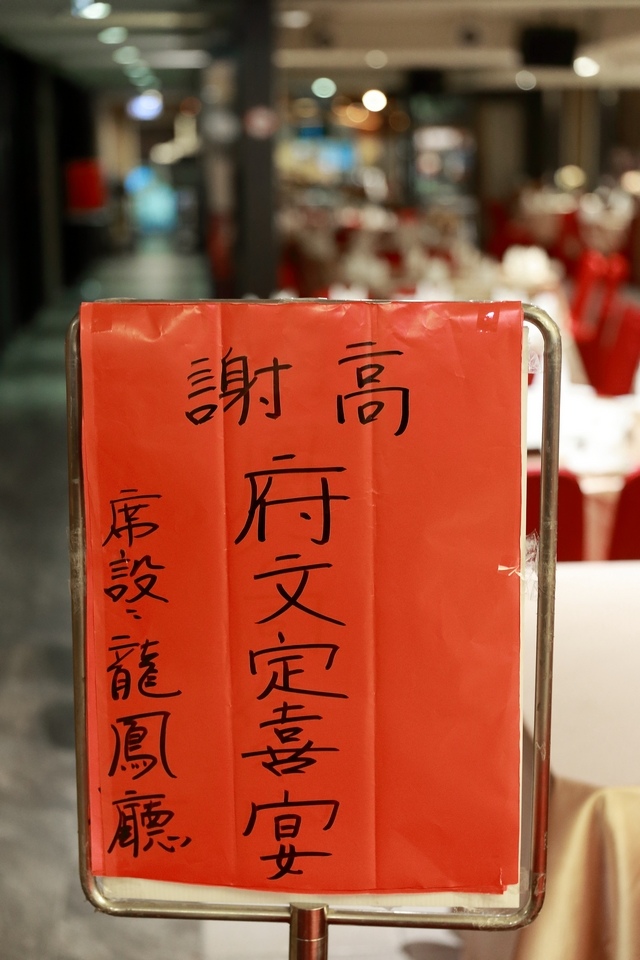 高謝
府文定喜宴
席設:龍鳳廳